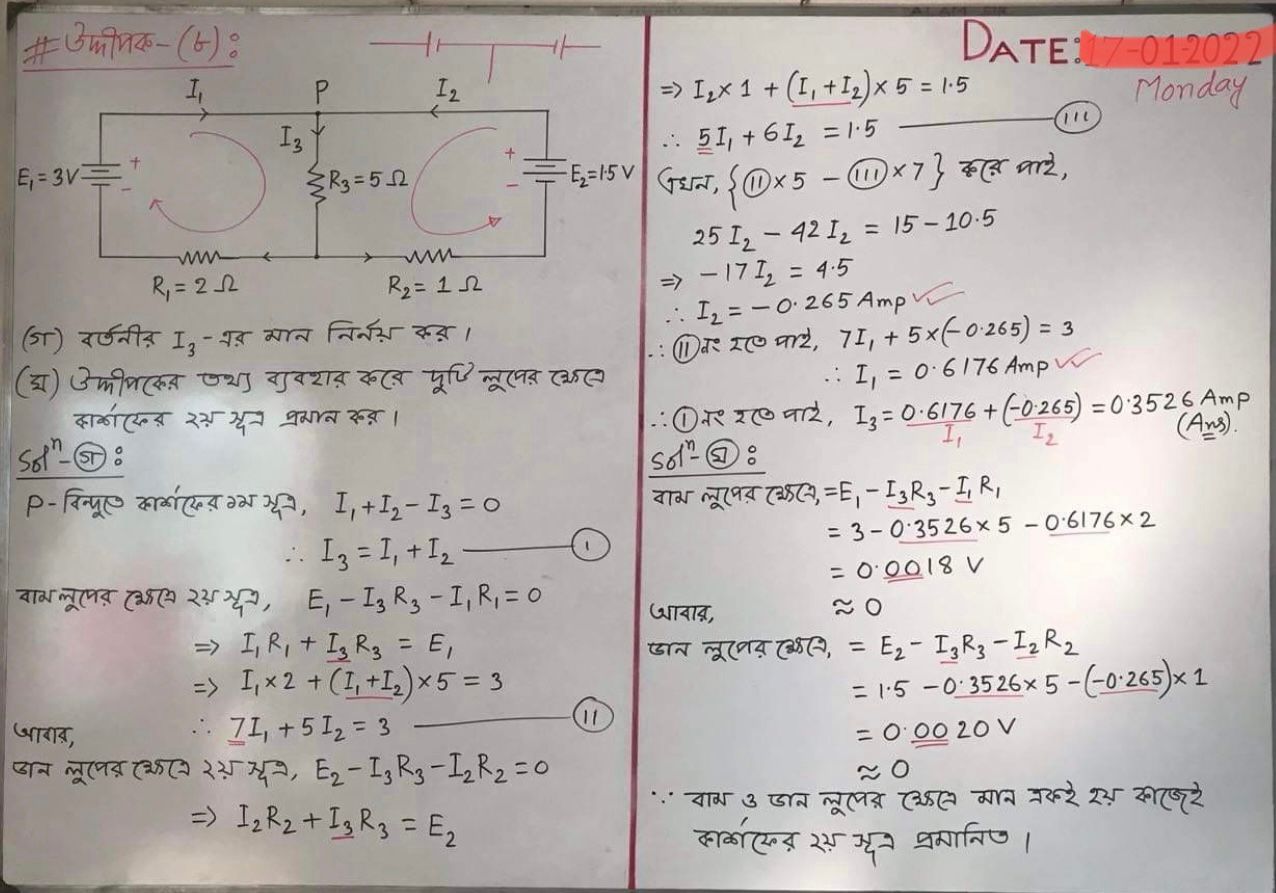 # উদ্দীপক-(৮):
I₁ P I₂
I₃
E₁ = 3V + - R₃ = 5 Ω + - E₂ = 1.5 V
R₁ = 2 Ω R₂ = 1 Ω
(গ) বর্তনীর I₃ -এর মান নির্ণয় কর।
(ঘ) উদ্দীপকের তথ্য ব্যবহার করে দুটি লুপের ক্ষেত্রে
কার্শফের ২য় সূত্র প্রমান কর।
Solⁿ-(গ):
P-বিন্দুতে কার্শফের ১ম সূত্র, I₁ + I₂ - I₃ = 0
∴ I₃ = I₁ + I₂ (I)
বাম লুপের ক্ষেত্রে ২য় সূত্র, E₁ - I₃R₃ - I₁R₁ = 0
⇒ I₁R₁ + I₃R₃ = E₁
⇒ I₁ × 2 + (I₁ + I₂) × 5 = 3
∴ 7I₁ + 5I₂ = 3 (II)
আবার,
ডান লুপের ক্ষেত্রে ২য় সূত্র, E₂ - I₃R₃ - I₂R₂ = 0
⇒ I₂R₂ + I₃R₃ = E₂
DATE: 17-01-2022
Monday
⇒ I₂ × 1 + (I₁ + I₂) × 5 = 1.5
∴ 5I₁ + 6I₂ = 1.5 (III)
এখন, {(II) × 5 - (III) × 7} করে পাই,
25 I₂ - 42 I₂ = 15 - 10.5
⇒ -17 I₂ = 4.5
∴ I₂ = -0.265 Amp
∴ (II) নং হতে পাই, 7I₁ + 5 × (-0.265) = 3
∴ I₁ = 0.6176 Amp
∴ (I) নং হতে পাই, I₃ = 0.6176 + (-0.265) = 0.3526 Amp
I₁ I₂ (Ans).
Solⁿ-(ঘ):
বাম লুপের ক্ষেত্রে, = E₁ - I₃R₃ - I₁R₁
= 3 - 0.3526 × 5 - 0.6176 × 2
= 0.0018 V
≈ 0
আবার,
ডান লুপের ক্ষেত্রে, = E₂ - I₃R₃ - I₂R₂
= 1.5 - 0.3526 × 5 - (-0.265) × 1
= 0.0020 V
≈ 0
∵ বাম ও ডান লুপের ক্ষেত্রে মান একই হয় কাজেই
কার্শফের ২য় সূত্র প্রমানিত।